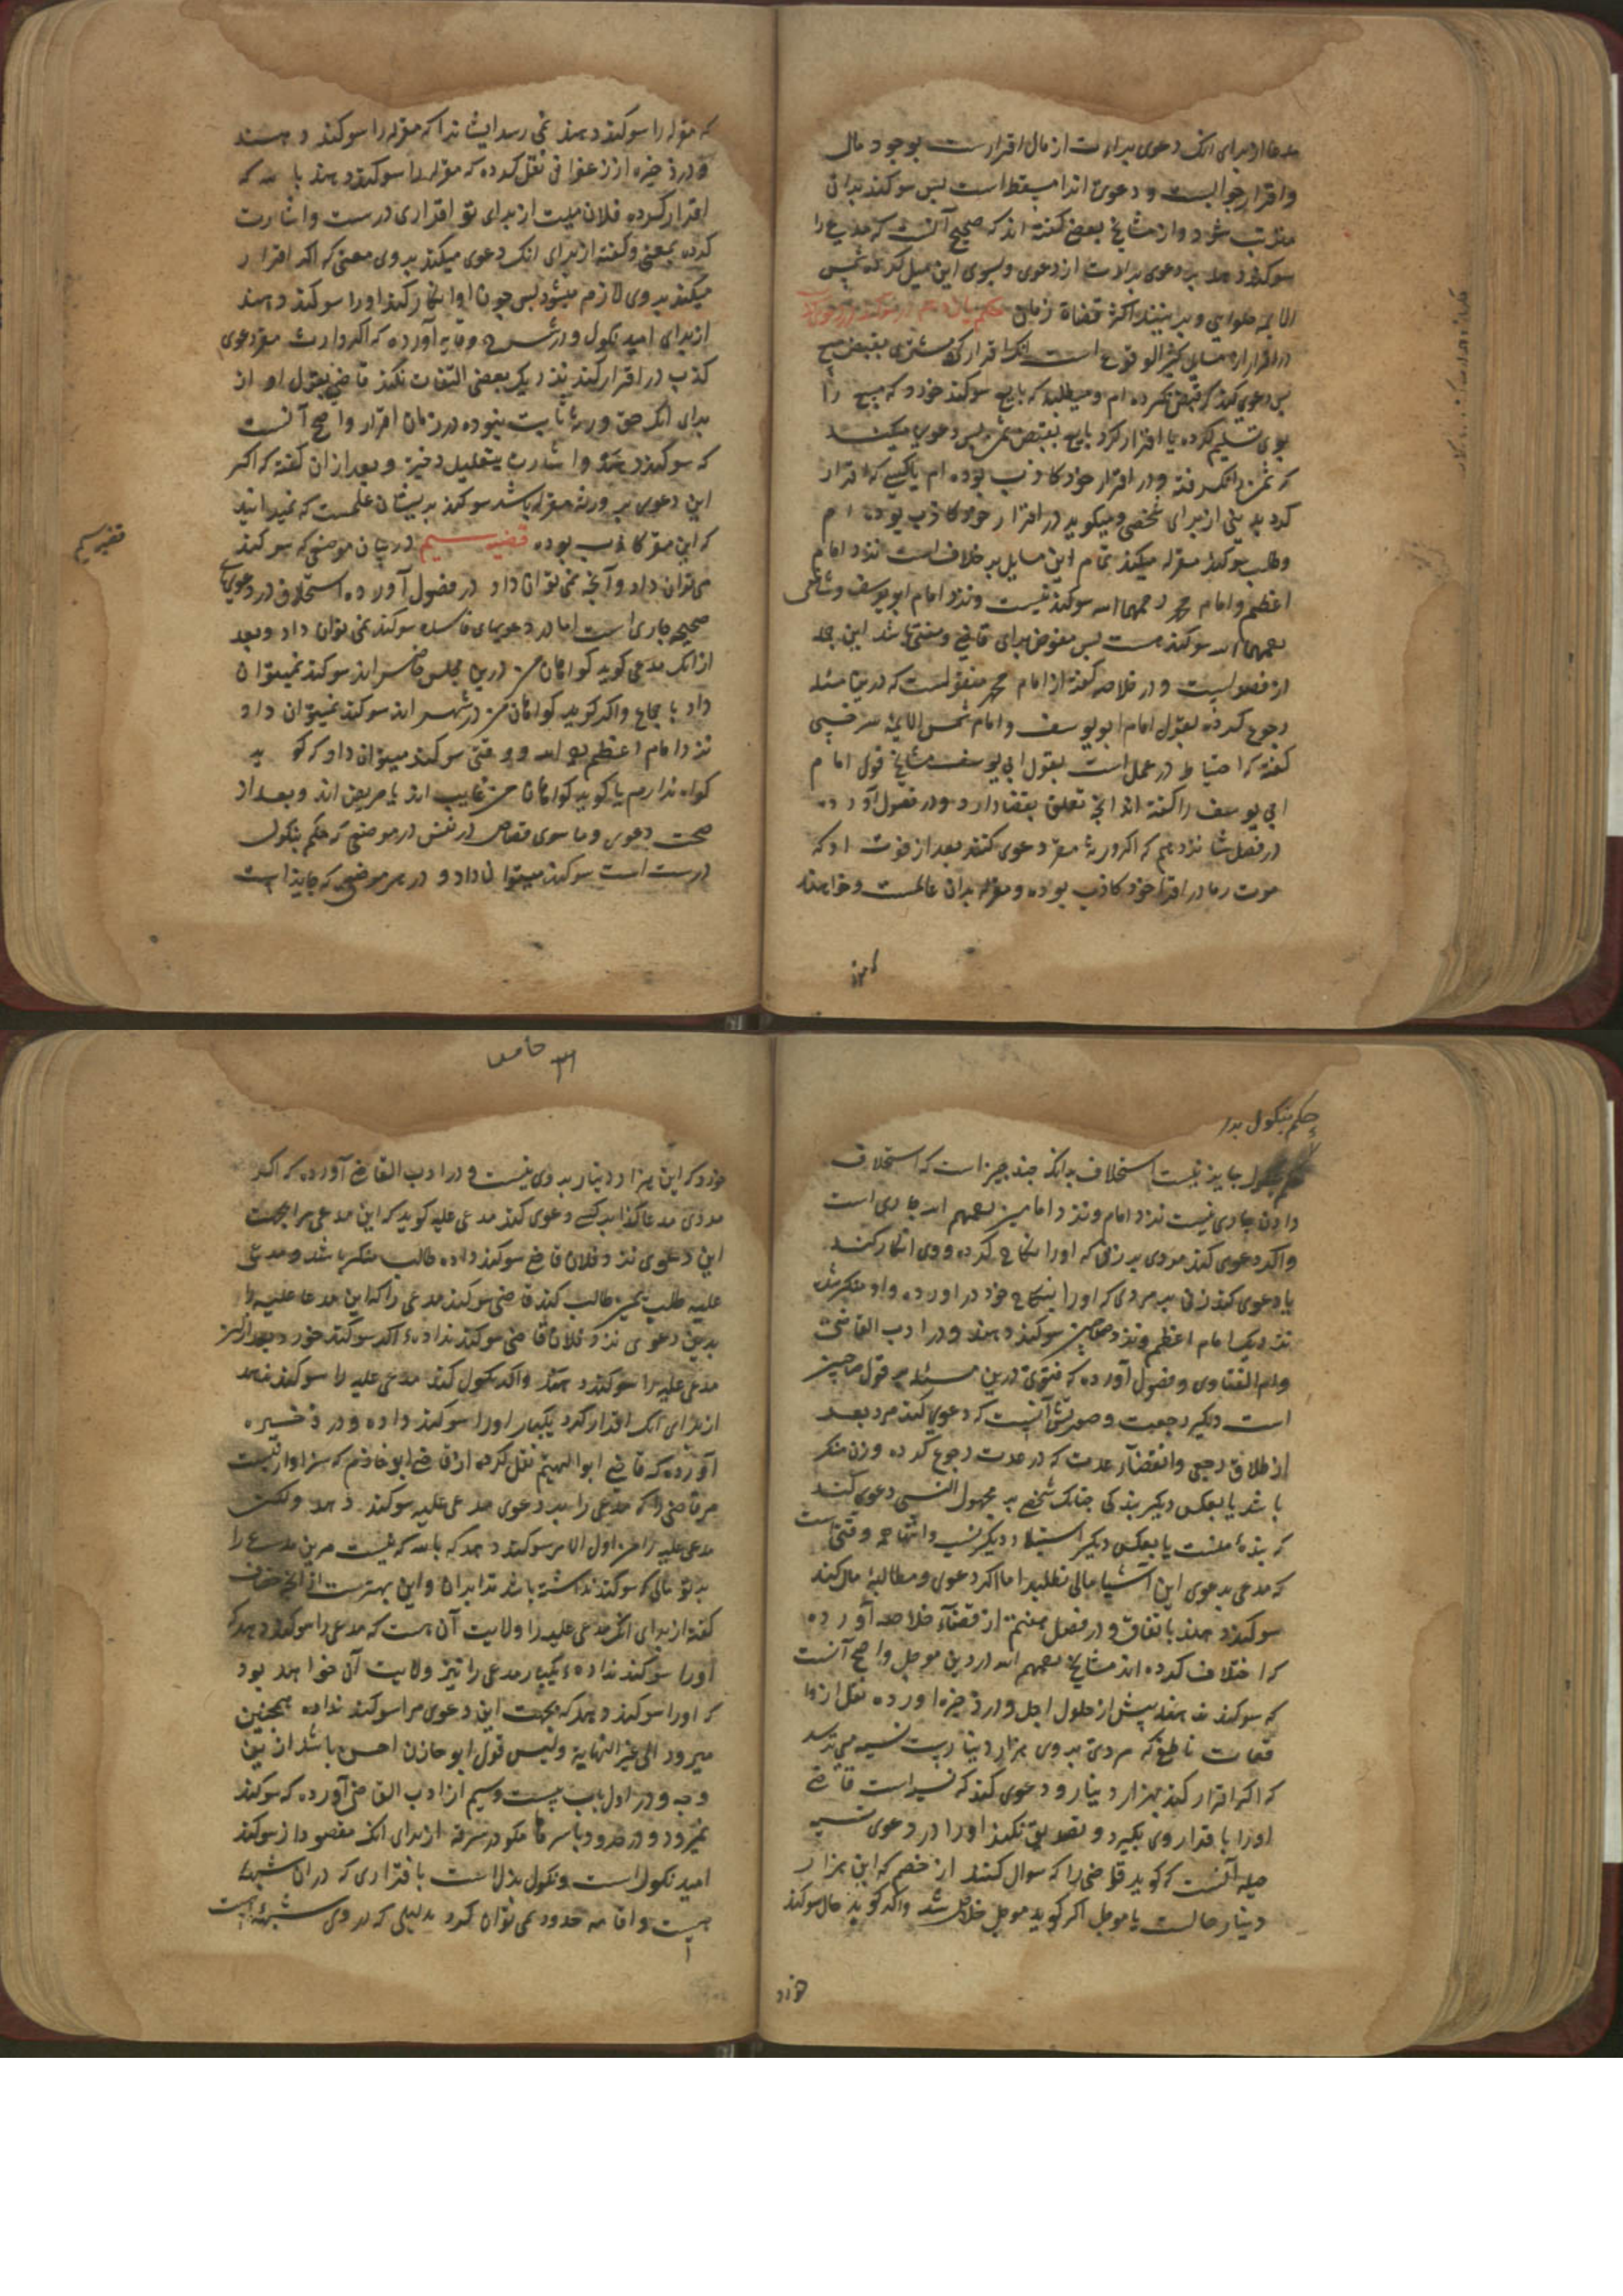 مدعا از برای انک دعوی براءت از مال اقرارست بوجود مال
واقرار جوابست و دعوی اندا مسقط است پس سوکند بران
مترتب شود واز مشایخ بعضی کفته اند که صحیح آنست که مدعی را
سوکند دهد بر دعوی براءت از دعوی وبسوی این میل کرده شمس
الایمه حلوایی وبرانیند اکثر قضاة زمان حکم سال دهم در سوکند در دعوی کذب
در اقرار از مسایل کثیر الوقوع است انک اقرار کرد مشتری بقبض مبیع
پس دعوی کند که قبض نکرده ام ومیطلبد که بایع سوکند خورد که مبیع را
بوی تسلیم کرده یا اقرار کرد بایع بقبض ثمن پس دعوی میکند
که ثمن نکرفته و در اقرار خود کاذب بوده ام یا کسی که اقرار
کرد بدینی از برای شخصی و میکوید در اقرار خود کاذب بوده ام
وطلب سوکند مقرله میکند تمام این مسایل بر خلاف است نزد امام
اعظم وامام محمد رحمهما الله سوکند نیست ونزد امام ابو یوسف وشافعی
رحمهما الله سوکند هست پس مفوض برای قاضی ومفتی باشد این جمله
از فصولست و در خلاصه کفته از امام محمد منقولست که درین مسئله
رجوع کرده بقول امام ابو یوسف وامام شمس الایمه سرخسی
کفته که احتیاط در عمل است بقول ابی یوسف مشایخ قول امام
ابی یوسف را کفته اند انچه تعلق بقضا دارد و در فصول آورده
در فصل شانزدهم که اکر ورثهٔ مقر دعوی کنند بعد از فوت او که
موت ما در اقرار خود کاذب بوده و مقرله بدان عالمست وخواهند
که مقرله را سوکند دهند نمی رسد ایشانرا که مقرله را سوکند دهند
و در ذخیره از زعفرانی نقل کرده که مقرله را سوکند دهند بالله که
اقرار کرده فلان میت از برای تو اقراری درست واشارت
کرده بمعنی وکفته از برای انک دعوی میکند بروی معنی که اکر اقرار
میکند بروی لازم میشود پس چون او انکار کند او را سوکند دهند
از برای امید نکول و در شرح وقایه آورده که اکر وارث مقر دعوی
کذب در اقرار کند نزدیک بعضی التفات نکند قاضی بقول او از
برای انک حق ورثه ثابت نبوده در زمان اقرار واصح آنست
که سوکند دهند واشارت بتعلیل ذخیره وبعد از ان کفته که اکر
این دعوی بر ورثه مقرله باشد سوکند بر ایشان علمست که نمیدانید
که این مقر کاذب بوده قضیه سیم در بیان موضعی که سوکند
می توان داد وآنچه نمی توان داد در فصول آورده استحلاف در دعویهای
صحیحه جاری است اما در دعویهای فاسده سوکند نمی توان داد وبعد
از انک مدعی کوید کواهان من درین مجلس حاضر اند سوکند نمیتوان
داد باجماع واکر کوید کواهان من در شهر اند سوکند نمیتوان داد
نزد امام اعظم رحمه الله و وقتی سوکند میتوان داد که کوید
کواه ندارم یا کوید کواهان من غایب اند یا مریض اند وبعد از
صحت دعوی وما سوی قصاص در نفس در موضعی که حکم بنکول
درست است سوکند میتوان داد و در هر موضعی که جایز است
قضیه سیم
حکم بنکول بدر
جایز نیست استحلاف بدانک چند چیز است که استحلاف
دادن جاری نیست نزد امام ونزد امامین رحمهم الله جاری است
واکر دعوی کند مردی بر زنی که او را نکاح کرده و وی انکار کند
یا دعوی کند زنی بر مردی که او را بنکاح خود در آورده واو منکر شد
نزدیک امام اعظم ونزد صاحبین سوکند دهند و در ادب القاضی
وام الفتاوی وفصول آورده که فتوی درین مسئله بر قول صاحبین
است دیکر رجعت وصورتش آنست که دعوی کند مرد بعد
از طلاق رجعی وانقضاء عدت که در عدت رجوع کرده وزن منکر
باشد یا بعکس دیکر بندکی چنانک شخصی بر مجهول النسبی دعوی کند
که بندهٔ منست یا بعکس دیکر استیلاد دیکر نسب واینها همه وقتی است
که مدعی بدعوی این اشیا مالی نطلبد اما اکر دعوی ومطالبهٔ مال کند
سوکند دهند باتفاق و در فصل هفتم از قضاء خلاصه آورده
که اختلاف کرده اند مشایخ رحمهم الله در دین موجل واصح آنست
که سوکند ندهند پیش از حلول اجل و در ذخیره آورده نقل از وا
قعات ناطفی که مردی بروی هزار دینارست نسیه می ترسد
که اکر اقرار کند بهزار دینار و دعوی کند که نسیه است قاضی
او را باقرار وی بکیرد و تصدیق نکند او را در دعوی نسیه
حیله آنست که کوید قاضی را که سوال کند از خصم که این هزار
دینار حالست یا موجل اکر کوید موجل خلاص شد واکر کوید حال سوکند
خورد
۳۱
خورد که این هزار دینار بروی نیست و در ادب القاضی آورده که اکر
مردی مدعا کذا بر کسی دعوی کند مدعی علیه کوید که این مدعی مرا بجهت
این دعوی نزد فلان قاضی سوکند داده طالب منکر باشد ومدعی
علیه طلب یمین طالب کند قاضی سوکند مدعی را که این مدعا علیه را
بدین دعوی نزد فلان قاضی سوکند نداده اکر سوکند خورد بعد از ان
مدعی علیه را سوکند دهند واکر نکول کند مدعی علیه را سوکند ندهد
از برای انک اقرار کرد یکبار او را سوکند داده و در ذخیره
آورده که قاضی ابو الهیثم نقل کرده از قاضی ابو خازم که سزاوار نیست
مر قاضی را که مدعی را بر دعوی مدعی علیه سوکند دهد ولکن
مدعی علیه را من اول الامر سوکند دهد که بالله که نیست مرین مدعی را
بر تو مالی که سوکند نداشته باشد ترا بران واین بهترست از انچه خصاف
کفته از برای انک مدعی علیه را ولایت آن هست که مدعی را سوکند دهد که
او را سوکند نداده یکبار مدعی را نیز ولایت آن خواهد بود
که او را سوکند دهد که بجهت این دعوی مرا سوکند نداده همچنین
میرود الی غیر النهایة ولیس قول ابو حازن احسن باشد از این
وجه و در اول باب بیست وسیم از ادب القاضی آورده که سوکند
نمیرود در حدود باسرها مکر در سرقه از برای انک مقصود از سوکند
امید نکول است ونکول بدل است با قراری که در ان شبههٔ
هست واقامه حدود نمی توان کرد بدلیلی که در وی شبههٔ هست